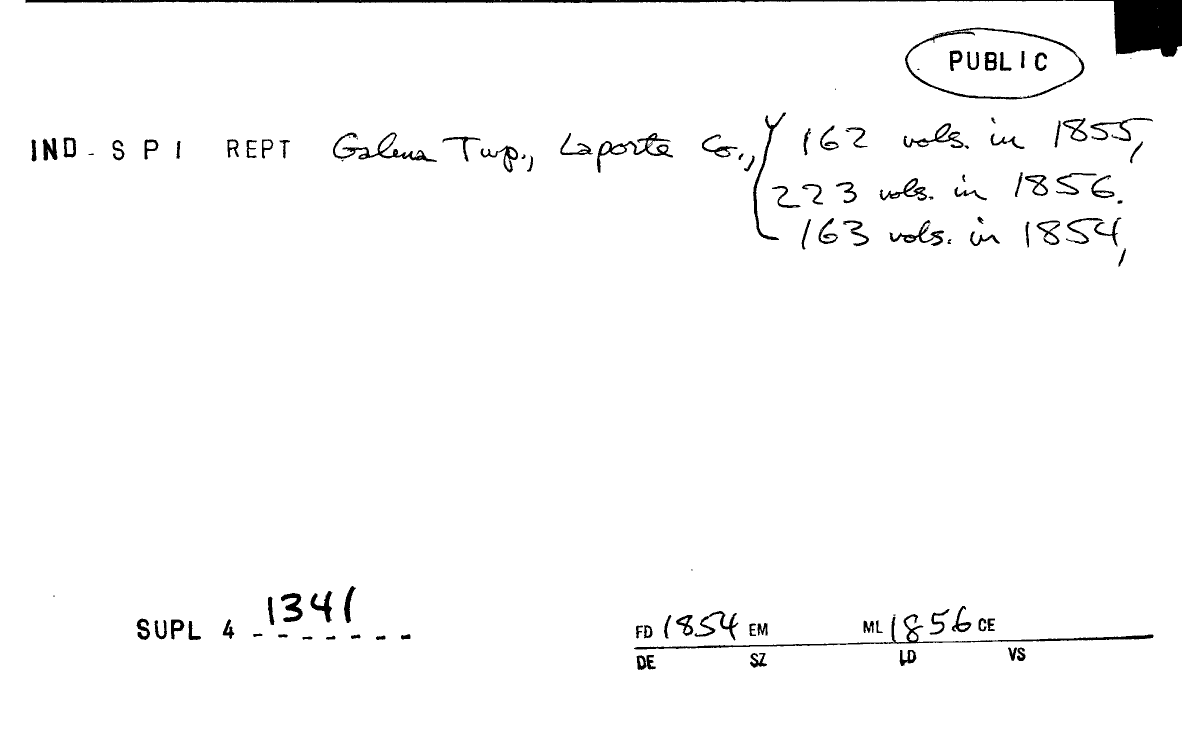 PUBLIC
IND-SPI REPT Galena Twp., Laporte Co., 162 vols. in 1855,
223 vols. in 1856.
163 vols. in 1854,
SUPL 4 1341
FD 1854 EM ML 1856 CE
DE SZ LD VS